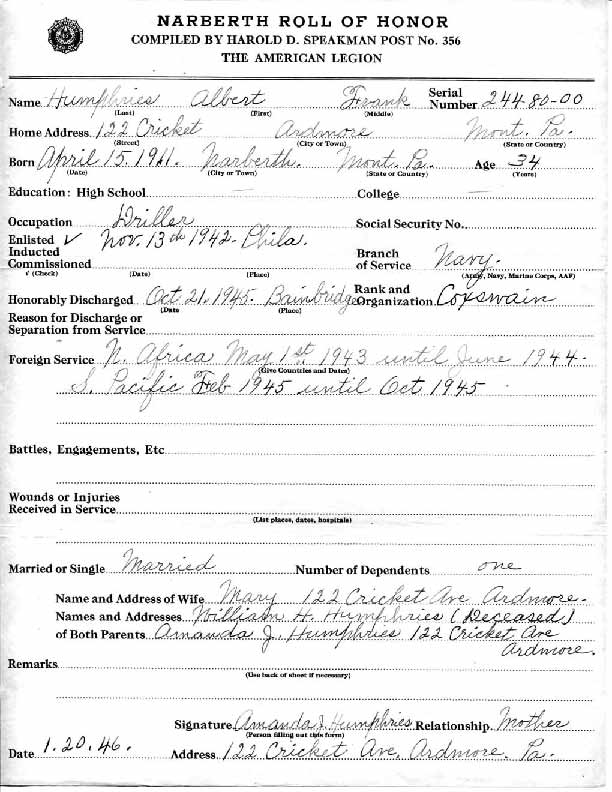 NARBERTH ROLL OF HONOR
COMPILED BY HAROLD D. SPEAKMAN POST No. 356
THE AMERICAN LEGION
Name Humphries Albert Frank Serial Number 244-80-00
(Last) (First) (Middle)
Home Address 122 Cricket Ardmore Mont. Pa.
(Street) (City or Town) (State or Country)
Born April 15. 1911. Narberth. Mont. Pa. Age 34
(Date) (City or Town) (State or Country) (Years)
Education: High School College
Occupation Driller Social Security No.
Enlisted ✓ Nov. 13th 1942 - Phila.
Inducted Branch
Commissioned of Service Navy.
✓ (Check) (Date) (Place) (Army, Navy, Marine Corps, AAF)
Honorably Discharged Oct 21, 1945. Bainbridge Rank and Organization Coxswain
(Date (Place)
Reason for Discharge or
Separation from Service
Foreign Service N. Africa May 1st. 1943 until June 1944-
(Give Countries and Dates)
S. Pacific Feb 1945 until Oct 1945
Battles, Engagements, Etc
Wounds or Injuries
Received in Service
(List places, dates, hospitals)
Married or Single Married Number of Dependents one
Name and Address of Wife Mary 122 Cricket Ave Ardmore.
Names and Addresses William H. Humphries (Deceased)
of Both Parents Amanda J. Humphries 122 Cricket Ave
Ardmore.
Remarks
(Use back of sheet if necessary)
Signature Amanda J Humphries Relationship Mother
(Person filling out this form)
Date 1.20.46. Address 122 Cricket Ave, Ardmore Pa.